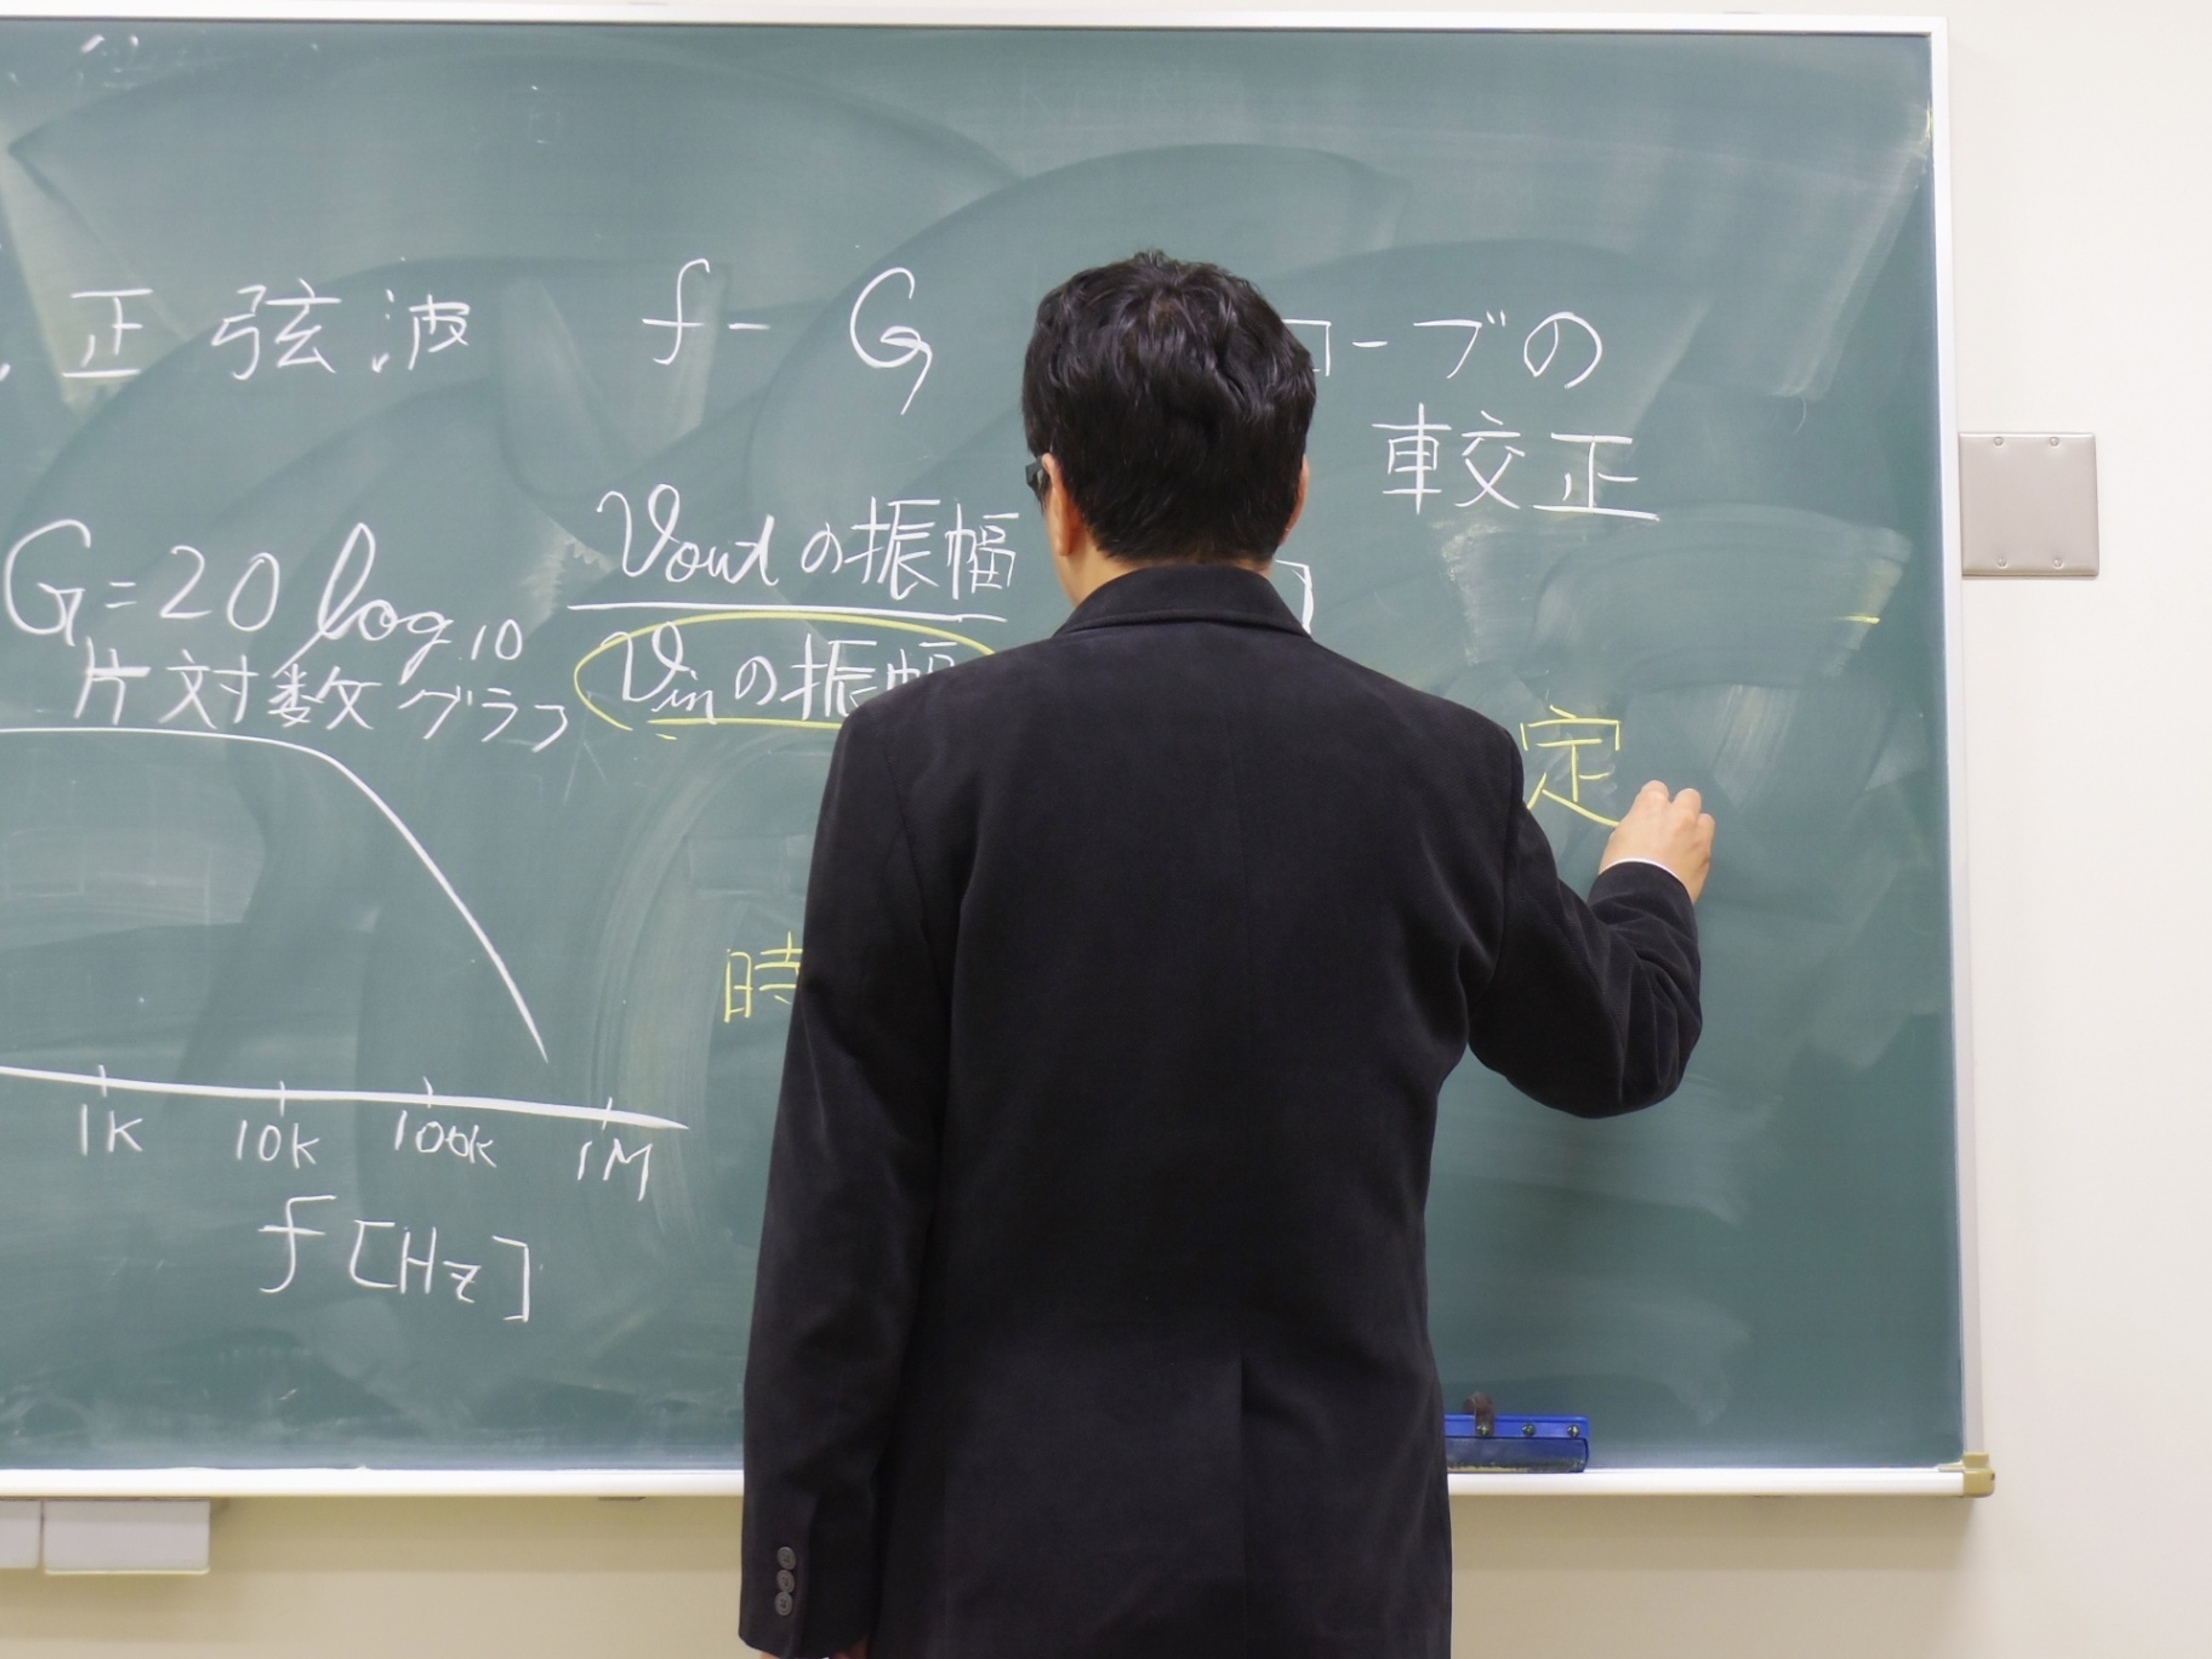 正弦波 f-G
ローブの
較正
G=20 log10 Voutの振幅
Vinの振幅
]
片対数グラフ
定
時
1K 10K 100K 1M
f[Hz]